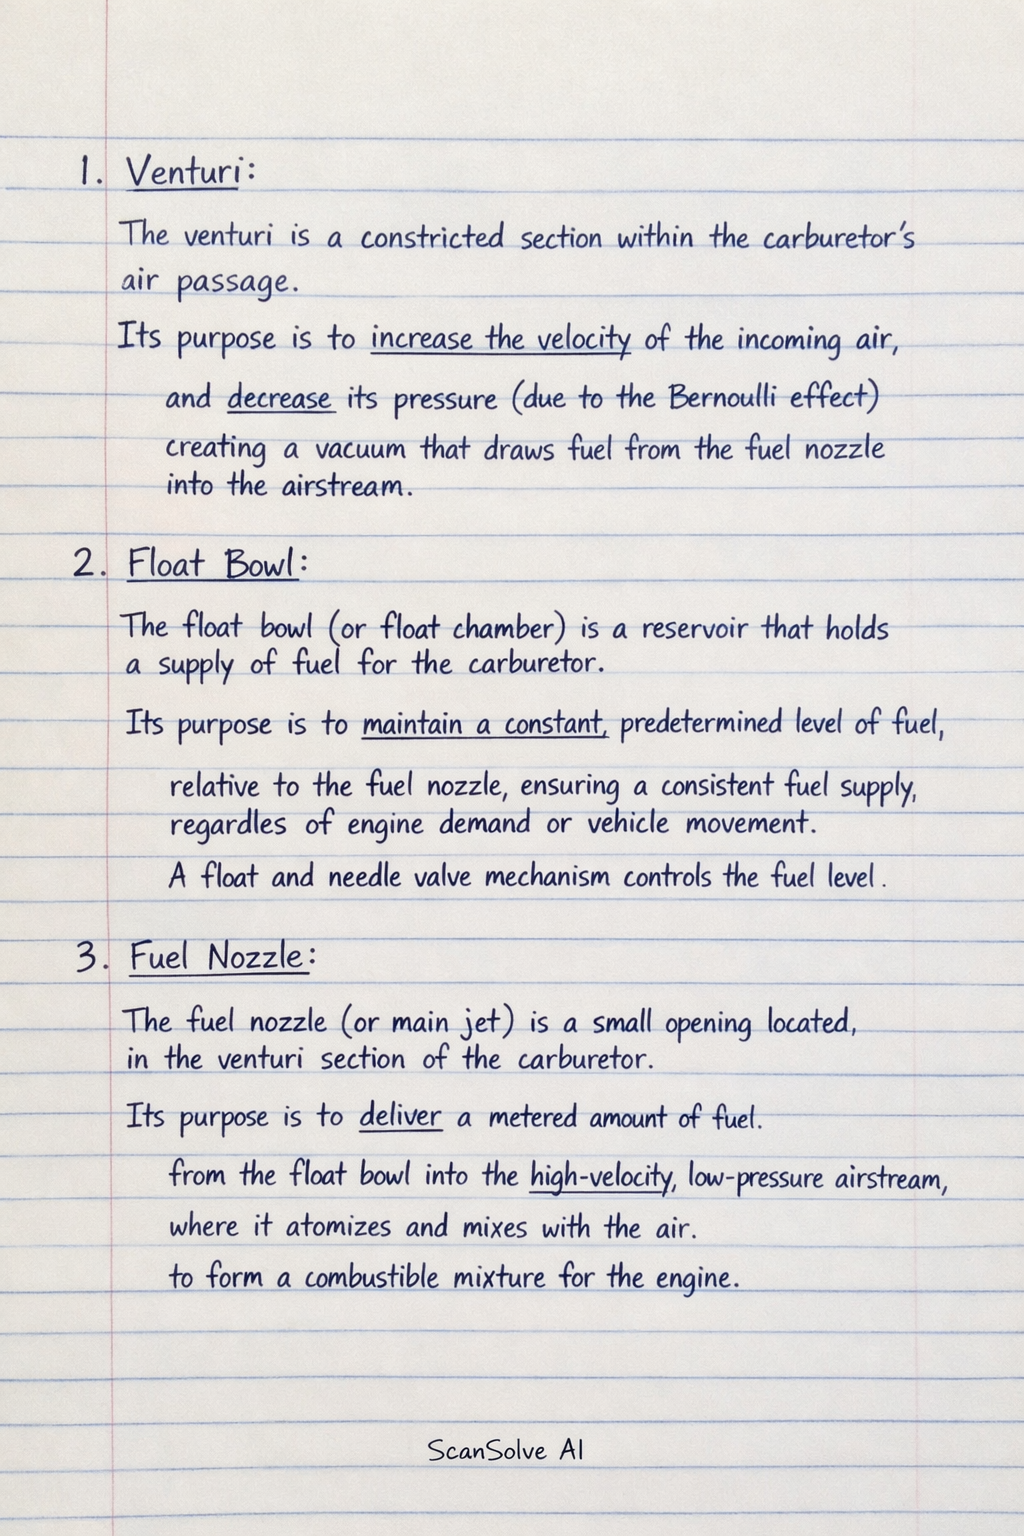 1. Venturi:
The venturi is a constricted section within the carburetor's
air passage.
Its purpose is to increase the velocity of the incoming air,
and decrease its pressure (due to the Bernoulli effect)
creating a vacuum that draws fuel from the fuel nozzle
into the airstream.
2. Float Bowl:
The float bowl (or float chamber) is a reservoir that holds
a supply of fuel for the carburetor.
Its purpose is to maintain a constant, predetermined level of fuel,
relative to the fuel nozzle, ensuring a consistent fuel supply,
regardles of engine demand or vehicle movement.
A float and needle valve mechanism controls the fuel level.
3. Fuel Nozzle:
The fuel nozzle (or main jet) is a small opening located,
in the venturi section of the carburetor.
Its purpose is to deliver a metered amount of fuel.
from the float bowl into the high-velocity, low-pressure airstream,
where it atomizes and mixes with the air.
to form a combustible mixture for the engine.
ScanSolve AI